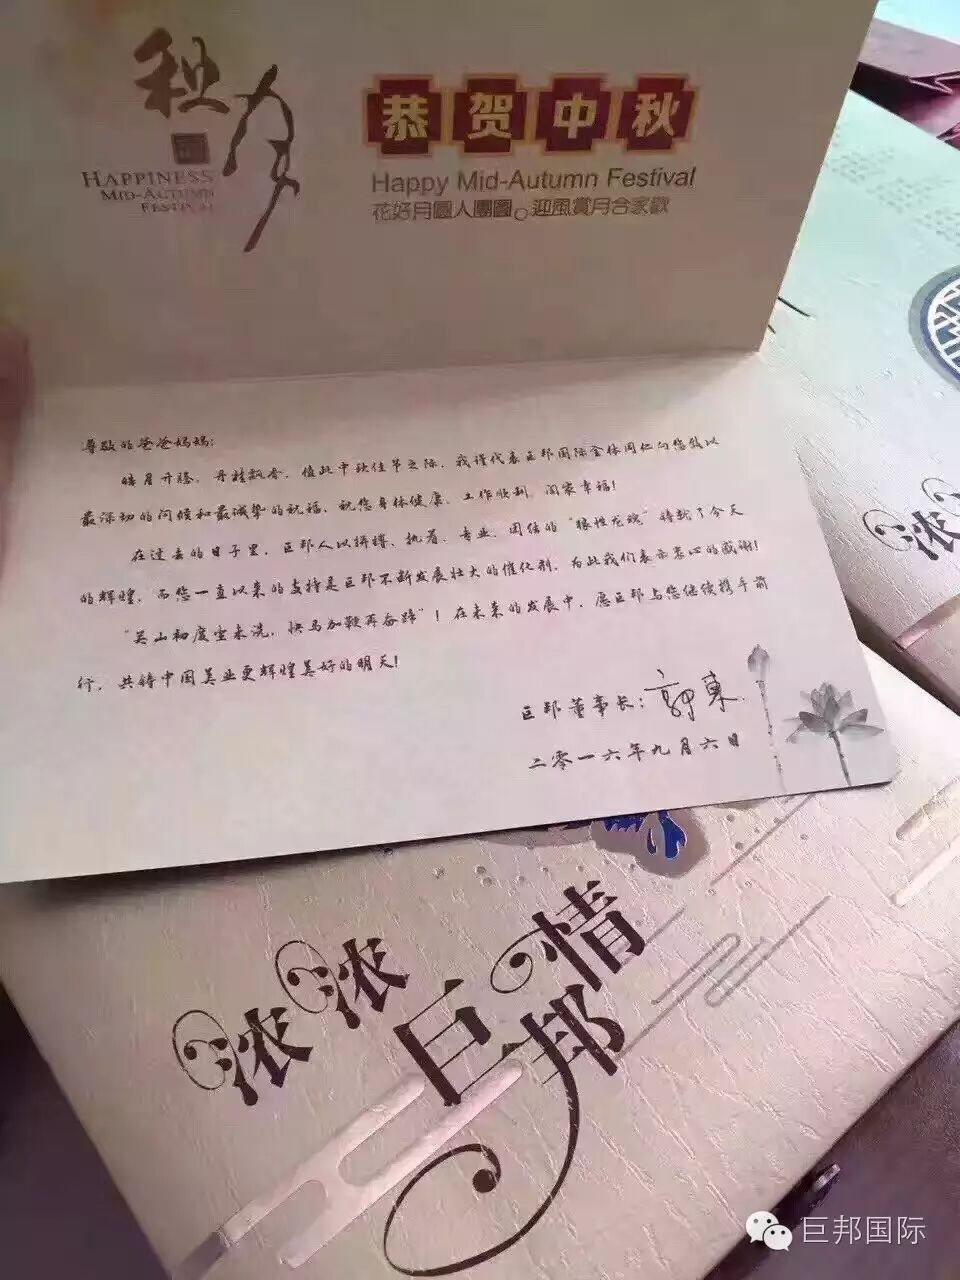 秋月
HAPPINESS
MID-AUTUMN
FESTIVAL
恭贺中秋
Happy Mid-Autumn Festival
花好月圓人團圓。迎風賞月合家歡
尊敬的爸爸妈妈:
皓月开臻,丹桂飘香,值此中秋佳节之际,我谨代表巨邦国际全体同仁向您致以
最深切的问候和最诚挚的祝福,祝您身体健康、工作顺利、阖家幸福!
在过去的日子里,巨邦人以拼搏、执着、专业、团结的“狼性龙魂”铸就了今天
的辉煌,而您一直以来的支持是巨邦不断发展壮大的催化剂,为此我们表示衷心的感谢!
“关山初度尘未洗,快马加鞭再奋蹄”!在未来的发展中,愿巨邦与您继续携手前
行,共铸中国美业更辉煌美好的明天!
巨邦董事长:郭東
二零一六年九月六日
浓
浓浓
巨邦情
巨邦国际